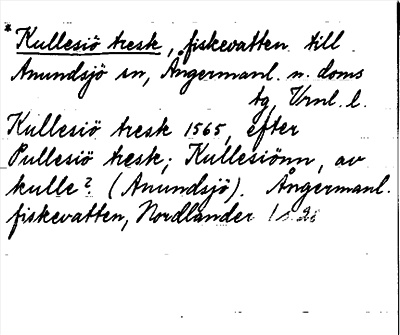 *Kullesiö tresk, fiskevatten till
Anundsjö sn, Ångermanl. n. doms
tg, Vrnl. l.
Kullesiö tresk 1565, efter
Pullesiö tresk; Kullesiönn, av
kulle? (Anundsjö). Ångermanl.
fiskevatten, Nordlander 1 s. 26